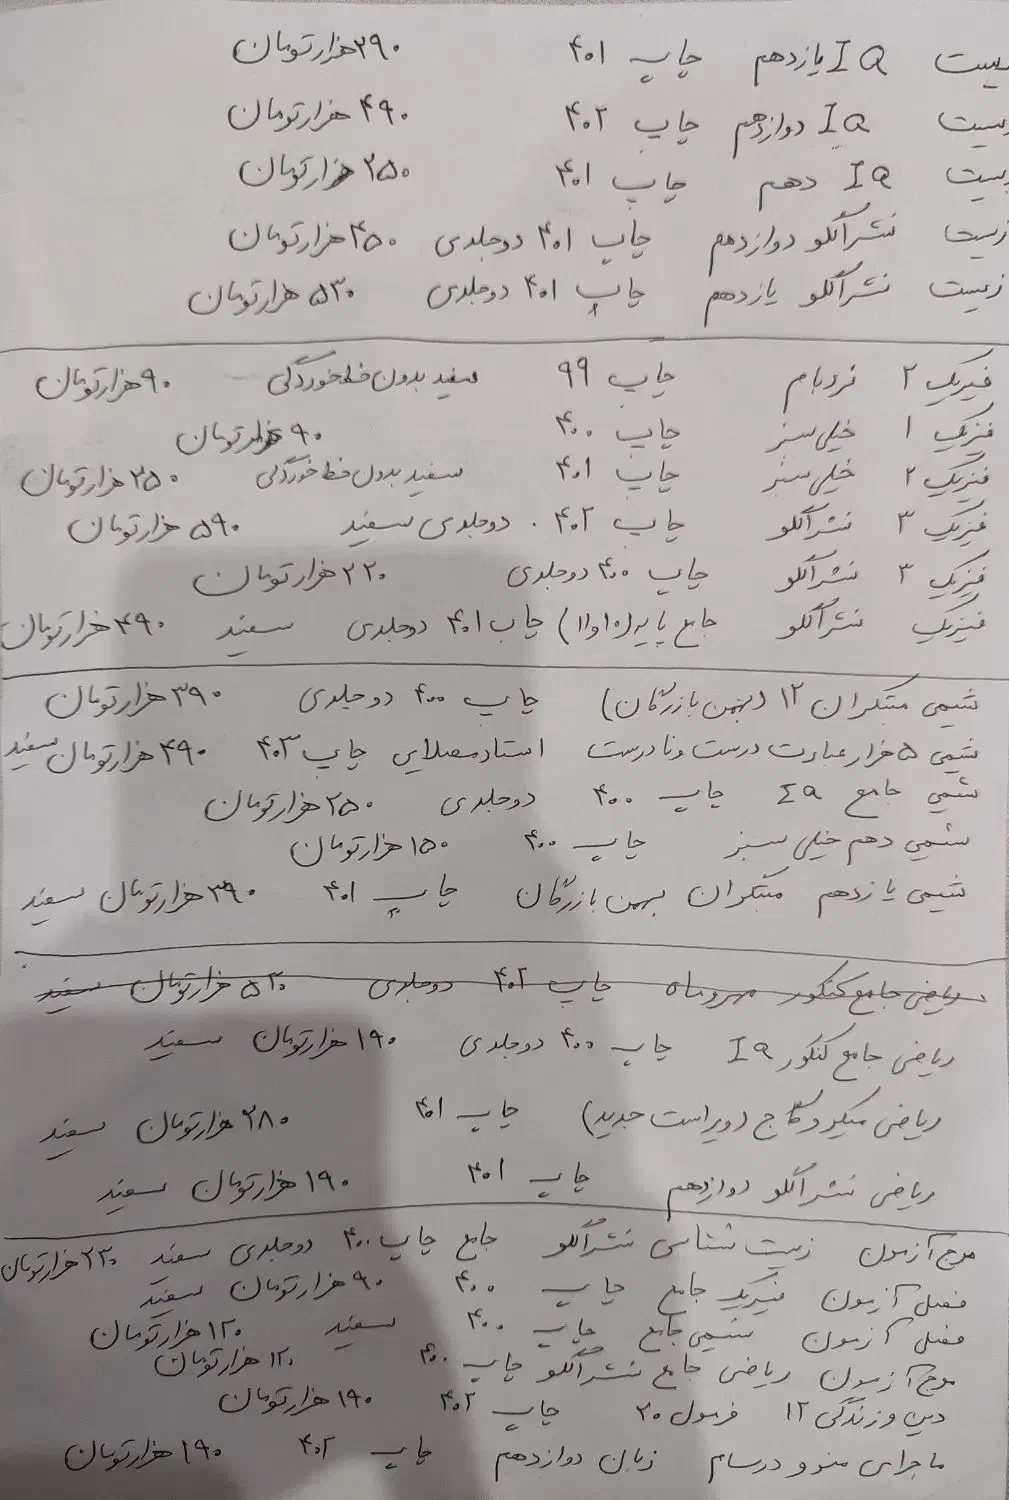 زیست IQ یازدهم چاپ ۴۰۱ ۲۹۰ هزار تومان
زیست IQ دوازدهم چاپ ۴۰۲ ۴۹۰ هزار تومان
زیست IQ دهم چاپ ۴۰۱ ۲۵۰ هزار تومان
زیست نشرالگو دوازدهم چاپ ۴۰۱ دوجلدی ۴۵۰ هزار تومان
زیست نشرالگو یازدهم چاپ ۴۰۱ دوجلدی ۵۳۰ هزار تومان
فیزیک ۲ نردبام چاپ ۹۹ سفید بدون خط خوردگی ۹۰ هزار تومان
فیزیک ۱ خیلی سبز چاپ ۴۰۰ ۹۰ هزار تومان
فیزیک ۲ خیلی سبز چاپ ۴۰۱ سفید بدون خط خوردگی ۲۵۰ هزار تومان
فیزیک ۳ نشرالگو چاپ ۴۰۲ دوجلدی سفید ۵۹۰ هزار تومان
فیزیک ۳ نشرالگو چاپ ۴۰۰ دوجلدی ۲۲۰ هزار تومان
فیزیک نشرالگو جامع پایه (۱۰ و ۱۱) چاپ ۴۰۱ دوجلدی سفید ۴۹۰ هزار تومان
شیمی مبتکران ۱۲ (بهمن بازرگان) چاپ ۴۰۰ دوجلدی ۳۹۰ هزار تومان
شیمی ۵ هزار عبارت درست و نادرست استاد مصلایی چاپ ۴۰۳ ۴۹۰ هزار تومان سفید
شیمی جامع IQ چاپ ۴۰۰ دوجلدی ۲۵۰ هزار تومان
شیمی دهم خیلی سبز چاپ ۴۰۰ ۱۵۰ هزار تومان
شیمی یازدهم مبتکران بهمن بازرگان چاپ ۴۰۱ ۳۹۰ هزار تومان سفید
ریاضی جامع کنکور مهروماه چاپ ۴۰۲ دوجلدی هزار تومان سفید
ریاضی جامع کنکور IQ چاپ ۴۰۰ دوجلدی ۱۹۰ هزار تومان سفید
ریاضی میکرو گاج (ویراست جدید) چاپ ۴۰۱ ۲۸۰ هزار تومان سفید
ریاضی نشرالگو دوازدهم چاپ ۴۰۱ ۱۹۰ هزار تومان سفید
موج آزمون زیست شناسی نشرالگو جامع چاپ ۴۰۰ دوجلدی سفید ۲۳۰ هزار تومان
فصل آزمون فیزیک جامع چاپ ۴۰۰ ۹۰ هزار تومان سفید
فصل آزمون شیمی جامع چاپ ۴۰۰ سفید ۱۲۰ هزار تومان
موج آزمون ریاضی جامع نشرالگو چاپ ۴۰۰ ۱۲۰ هزار تومان
دین و زندگی ۱۲ فرمول ۲۰ چاپ ۴۰۲ ۱۹۰ هزار تومان
ماجرای من و درسام زبان دوازدهم چاپ ۴۰۲ ۱۹۰ هزار تومان